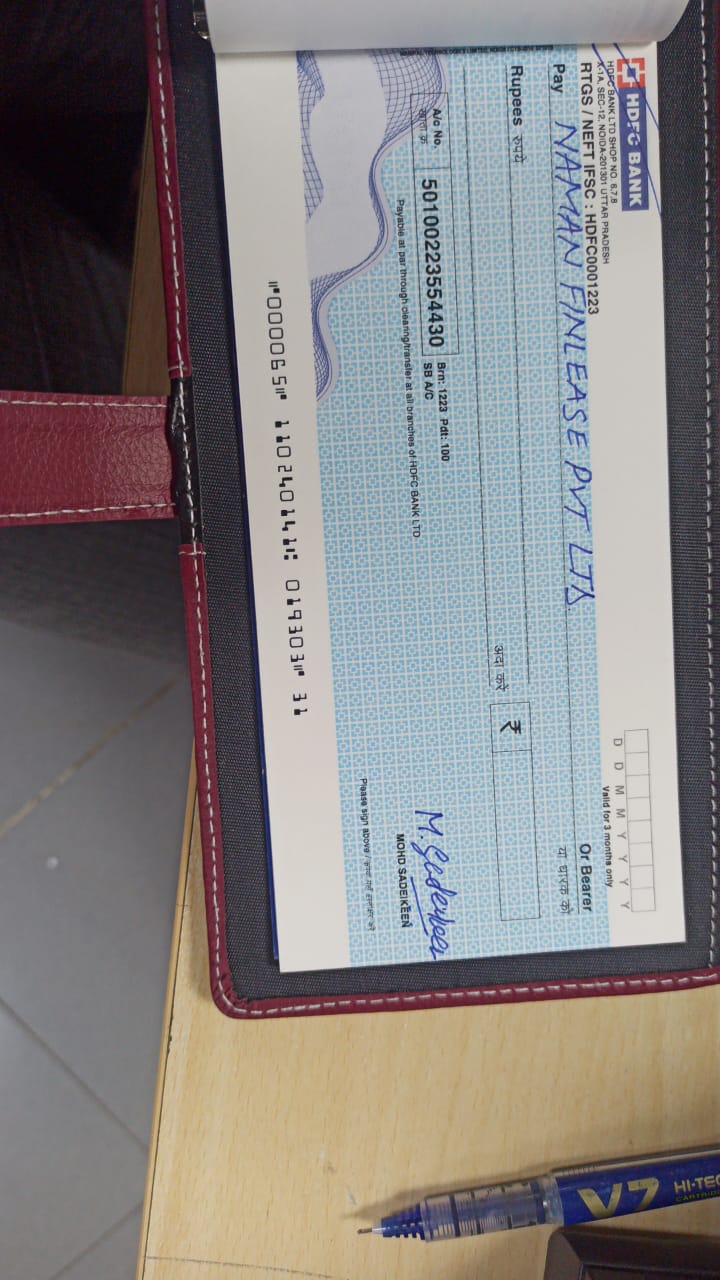 HDFC BANK
HDFC BANK LTD SHOP NO. 6,7,8
K-1A, SEC-12, NOIDA-201301 UTTAR PRADESH
RTGS / NEFT IFSC : HDFC0001223
D D M M Y Y Y Y
Valid for 3 months only
Pay NAMAN FINLEASE PVT LTD. Or Bearer
या धारक को
Rupees रुपये
अदा करें ₹
A/c No. 50100223554430
Brn: 1223 Pdt: 100
SB A/C
Payable at par through clearing/transfer at all branches of HDFC BANK LTD
M. Sadeikeen
MOHD SADEIKEEN
Please sign above /
⑈000065⑈ 110240141⑆ 019303⑈ 31
V7
HI-TEC